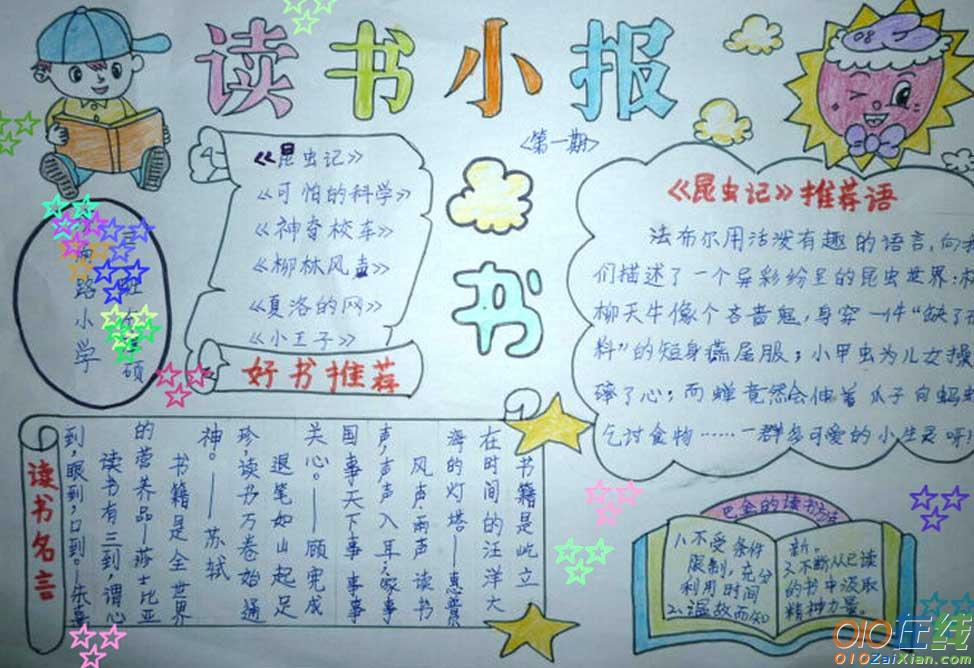 读书小报
<第一期>
《昆虫记》
《可怕的科学》
《神奇校车》
《柳林风声》
《夏洛的网》
《小王子》
好书推荐
路小学
硕
书
《昆虫记》推荐语
法布尔用活泼有趣的语言,向我
们描述了一个异彩纷呈的昆虫世界:
柳天牛像个吝啬鬼,身穿一件“缺了
料”的短身燕尾服;小甲虫为儿女操
碎了心;而蝉竟然会伸着爪子向蚂
乞讨食物……一群多可爱的小生灵呀
读书名言
书籍是屹立
在时间的汪洋大
海的灯塔——惠普
风声雨声读书
声,声声入耳;家事
国事天下事,事事
关心。——顾宪成
退笔如山起足
珍,读书万卷始通
神。——苏轼
书籍是全世界
的营养品—莎士比亚
读书有三到,谓心
到,眼到,口到。—朱熹
巴金的读书方法
1、不受条件
限制,充分
利用时间
2、温故而知
新。
3、不断从已读
的书中汲取
精神力量。
08
010在线
010ZaiXian.com